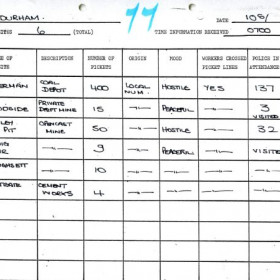 DURHAM. 77 10/5/
SITES 6 (TOTAL) TIME INFORMATION RECEIVED 0700
E OF TE DESCRIPTION NUMBER OF PICKETS ORIGIN MOOD WORKERS CROSSED PICKET LINES POLICE IN ATTENDANCE
ERMAN COAL DEPOT 400 LOCAL NUM. HOSTILE YES 137
DSIDE PRIVATE DRIFT MINE 15 —"— PEACEFUL —"— 3 VISITED
LEY PIT OPENCAST MINE 50 —"— HOSTILE —"— 32
—"— 9 —"— PEACEFUL —"— VISITE
HSETT —"— 10 —"— —"— —"— —"—
GATE CEMENT WORKS 4 —"— —"— —"— —"—